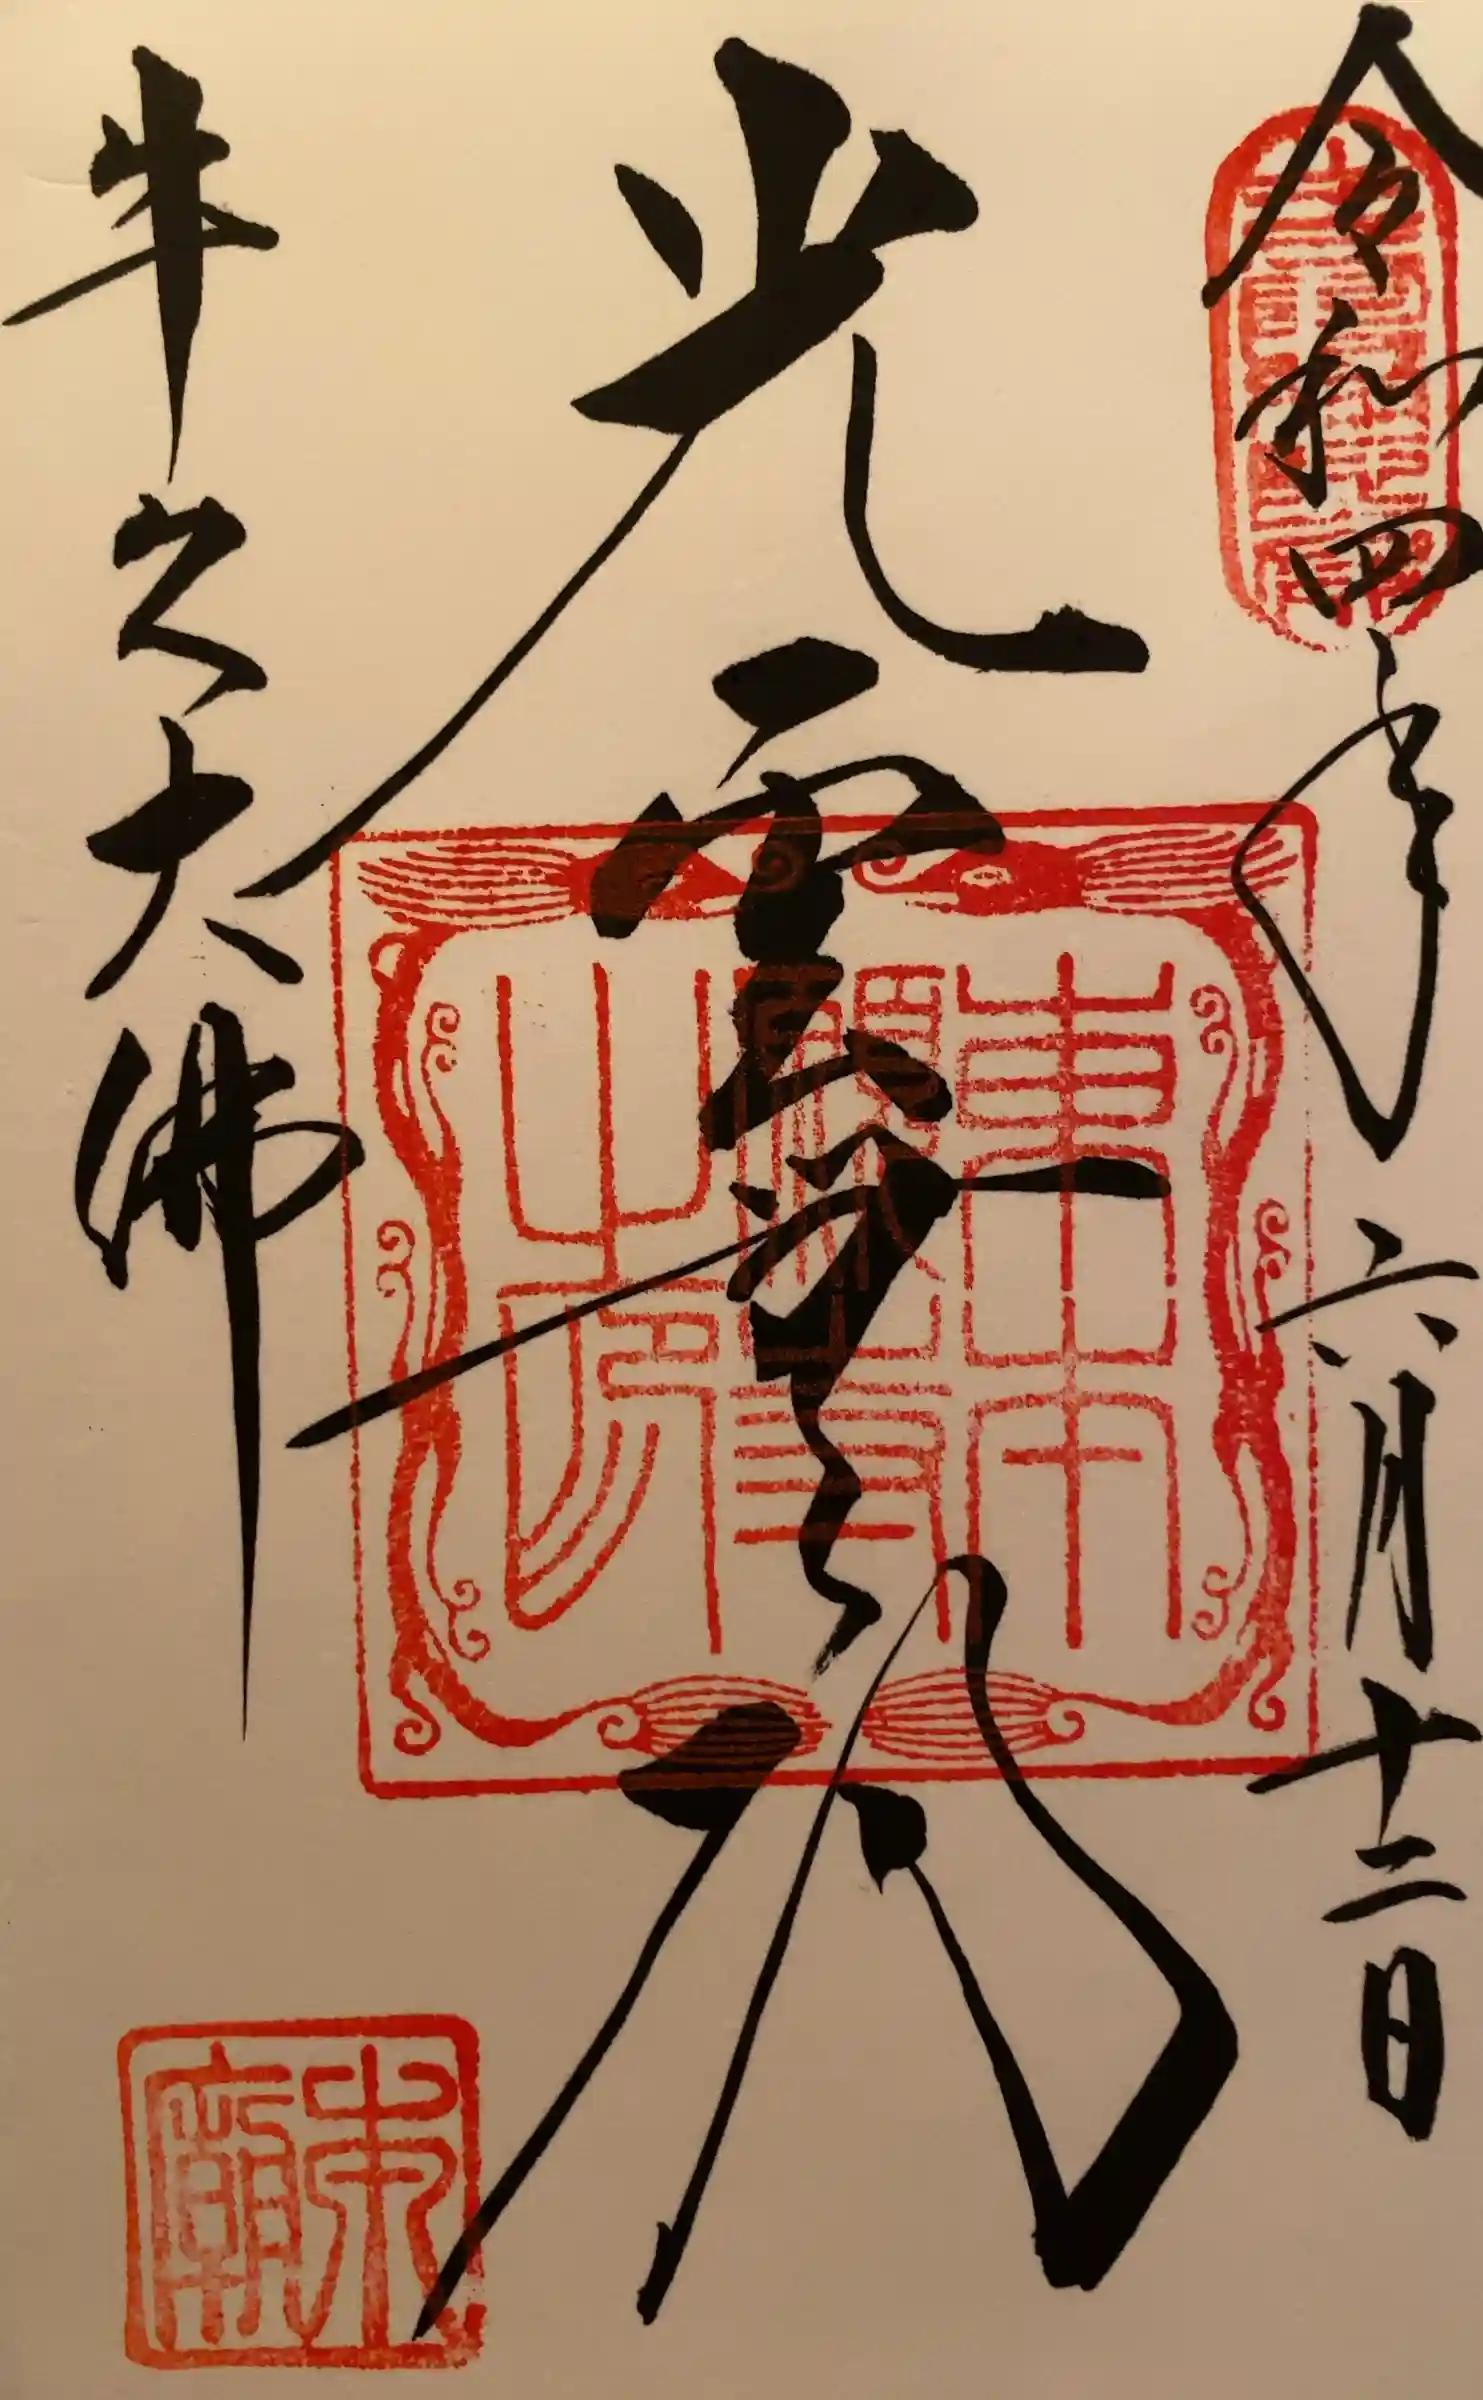 令和四年六月十二日
光雲無
東本願寺之印
牛久大佛